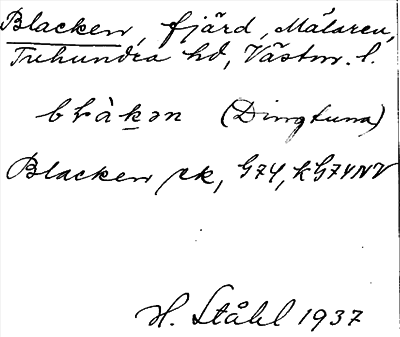 Blacken, fjärd, Mälaren,
Tuhundra hd, Västm. l.
blàkən (Dingtuna)
Blacken rk, G74, kG74NV
H. Ståhl 1937